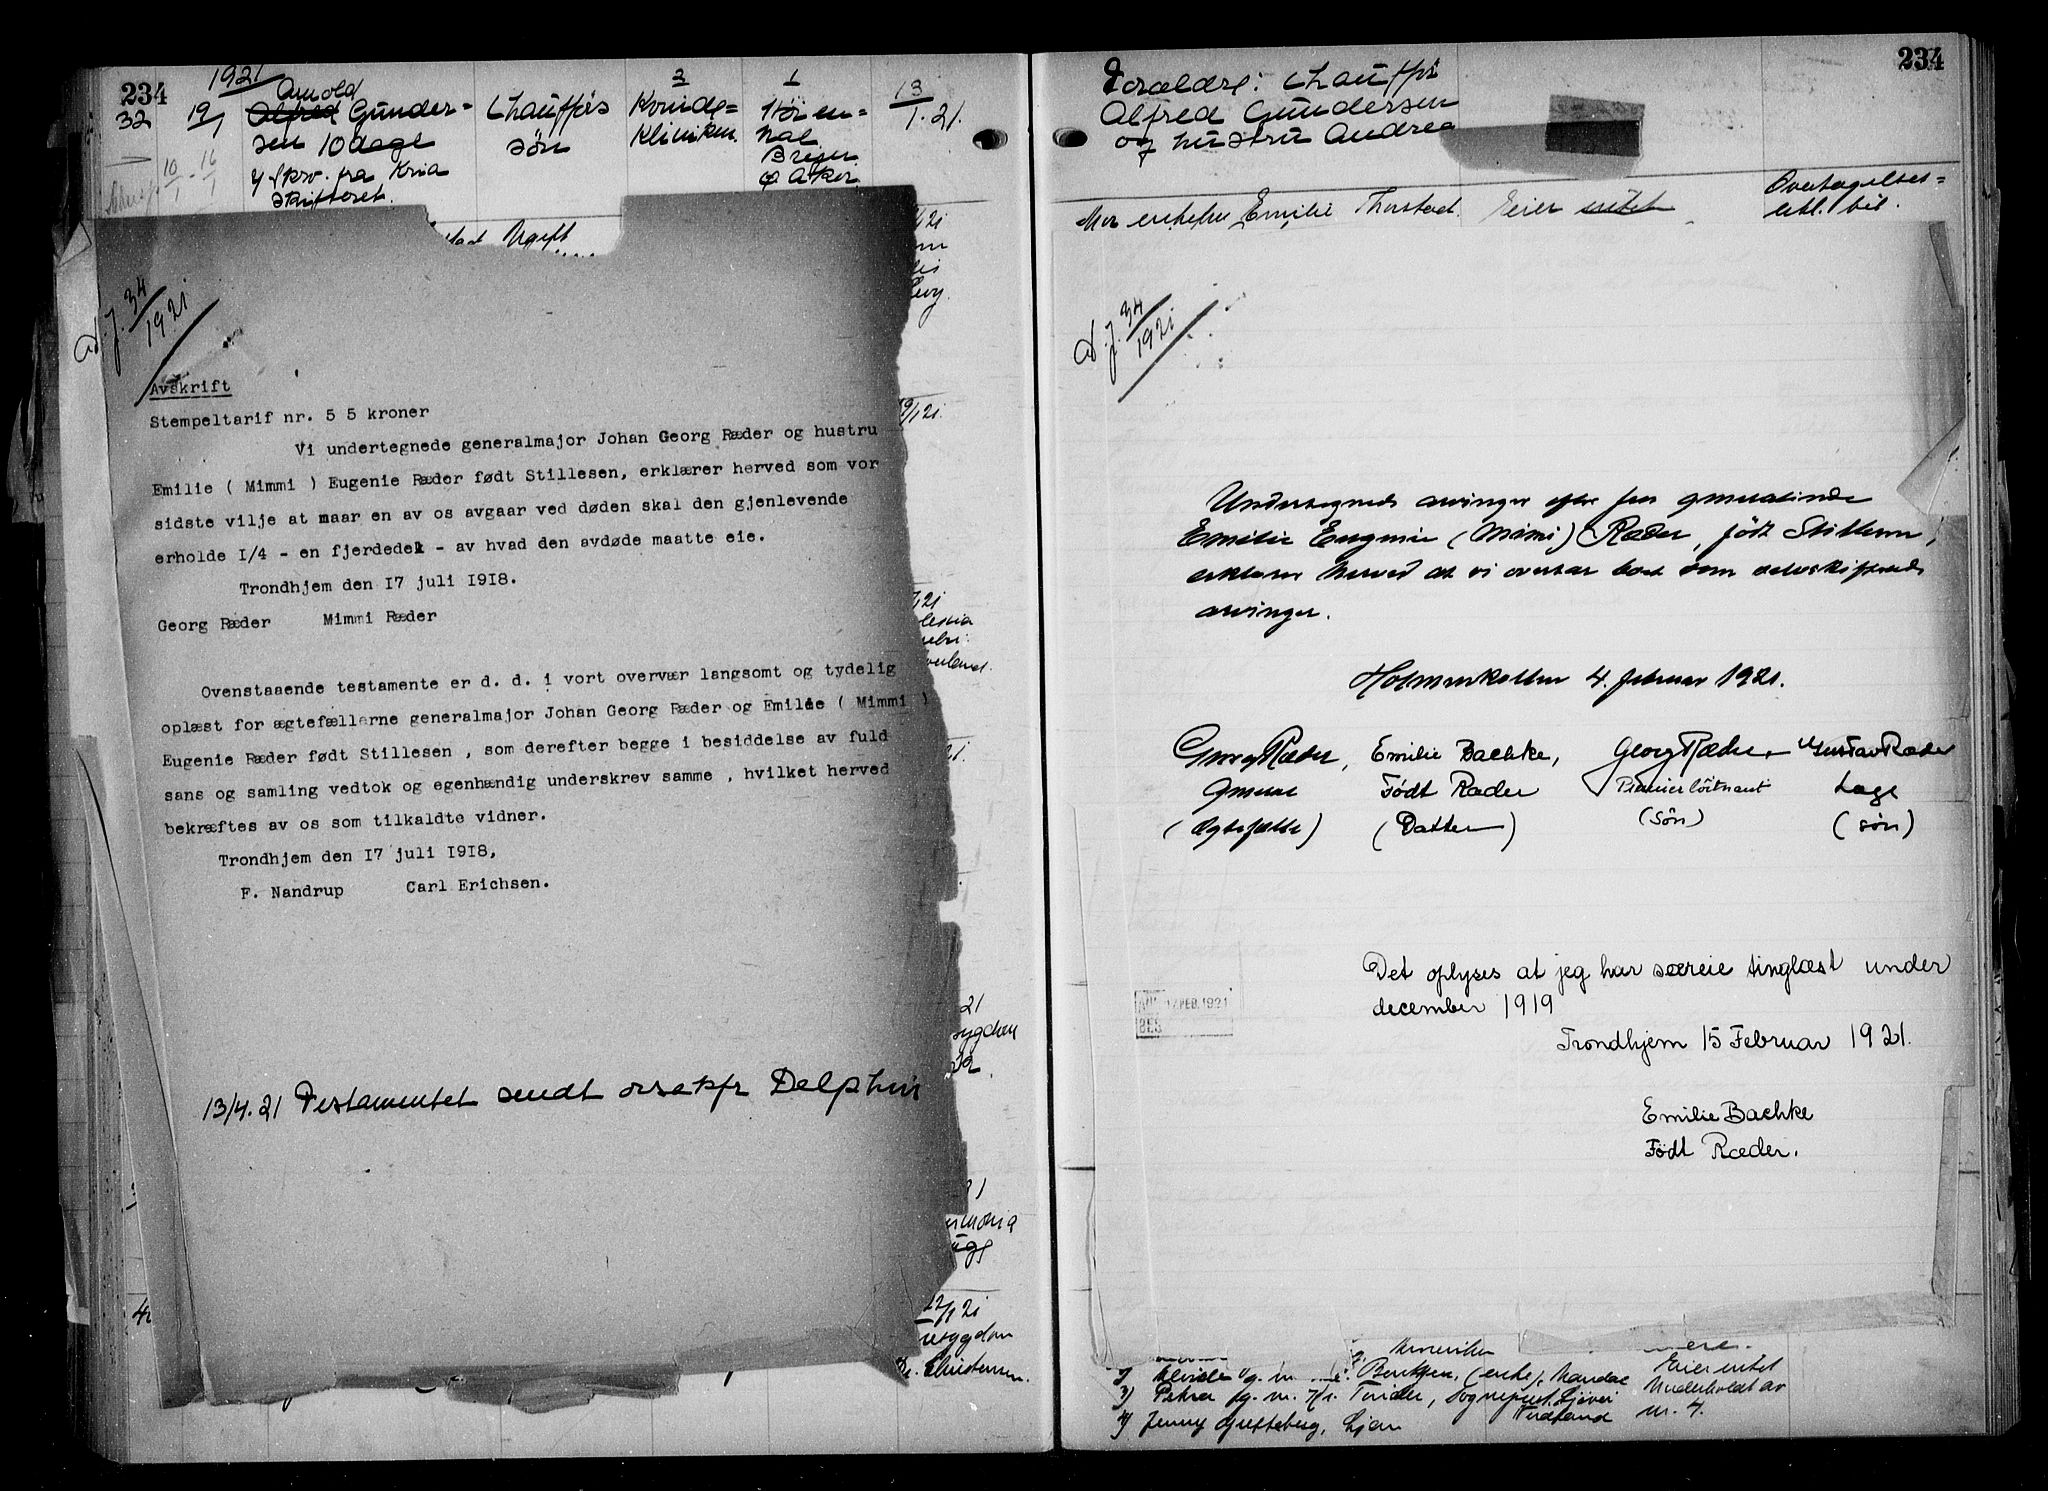 234
32
1921
19/1
Arnold
Alfred Gunder=
sen 10 dage
skifteret.
Chaufførs
søn
2
Kvinde=
Kliniken.
1
Aker
13/1.21.
10/1 - 16/1
Ugift
ad J. 34/1921
Avskrift
Stempeltarif nr. 5 5 kroner
Vi undertegnede generalmajor Johan Georg Ræder og hustru
Emilie ( Mimmi ) Eugenie Ræder født Stillesen, erklærer herved som vor
sidste vilje at maar en av os avgaar ved døden skal den gjenlevende
erholde I/4 - en fjerdedel - av hvad den avdøde maatte eie.
Trondhjem den I7 juli I9I8.
Georg Ræder Mimmi Ræder
Ovenstaaende testamente er d. d. i vort overvær langsomt og tydelig
oplæst for ægtefællerne generalmajor Johan Georg Ræder og Emilie ( Mimmi )
Eugenie Ræder født Stillesen , som derefter begge i besiddelse av fuld
sans og samling vedtok og egenhændig underskrev samme , hvilket herved
bekræftes av os som tilkaldte vidner.
Trondhjem den I7 juli I9I8,
F. Nandrup Carl Erichsen.
13/4.21 Testamentet sendt orsakfr Delphin
Christensen.
234
Forældre: Chauffør
Alfred Gundersen
og hustru Andrea
Mor enkefru Emilie Thorstad. Eier intet
Overtagelses=
erkl. bil.
ad J. 34/1921
Undertegnede arvinger efter fru generalinde
Emilie Eugenie (Mimi) Ræder, født Stillesen,
erklærer herved at vi overtar boet som selvskiftende
arvinger.
Holmenkollen 4. februar 1921.
Georg Ræder, Emilie Bachke, Georg Ræder, Gustav Ræder
General Født Ræder Premierløitnant Læge
(Ægtefælle) (Datter) (Søn) (søn)
17 FEB. 1921
Det oplyses at jeg har særeie tinglæst under
december 1919
Trondhjem 15 Februar 1921.
Emilie Bachke
Født Ræder.
Eier intet
3) Petra g. m. Sogneprest
Underholdt av
4) Jenny Ljan
nr. 4.